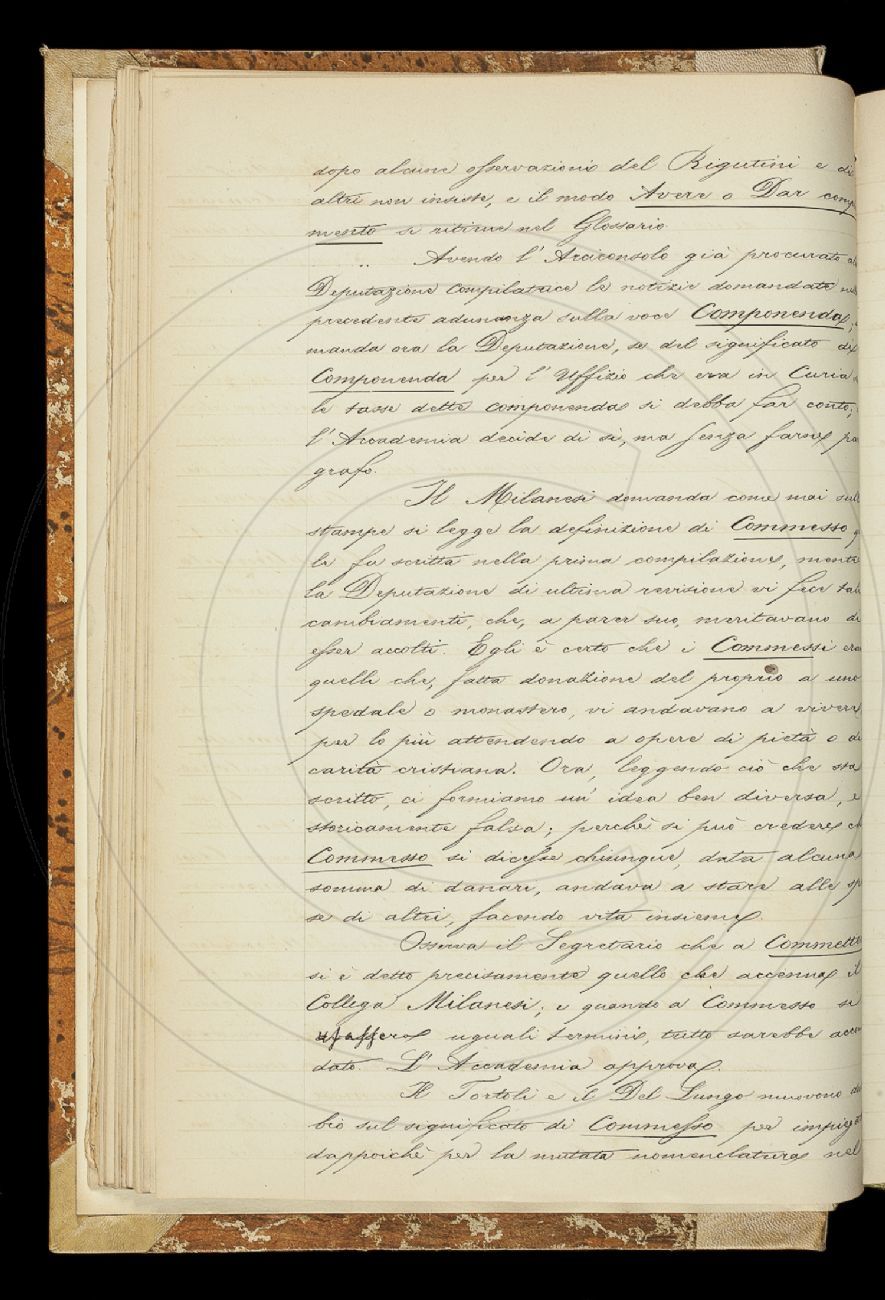 dopo alcune osservazioni del Rigutini e di
altri non insiste, e il modo Avere o Dar comp
mento si ritiene nel Glossario.
Avendo l'Arciconsolo già procurate al
Deputazione Compilatrice le notizie domandate
precedente adunanza sulla voce Componenda,
manda ora la Deputazione, se del significato di
Componenda per l'Uffizio che era in Curia
le tasse dette componende si debba far conto;
l'Accademia decide di sì, ma senza farne pa
grafo.
Il Milanesi domanda come mai sull
stampe si legge la definizione di Commesso q
le fu scritta nella prima compilazione, mentre
la Deputazione di ultima revisione vi fece tali
cambiamenti, che, a parer suo, meritavano di
esser accolti. Egli è certo che i Commessi era
quelli che, fatta donazione del proprio a uno
spedale o monastero, vi andavano a vivere
per lo più attendendo a opere di pietà o di
carità cristiana. Ora, leggendo ciò che sta
scritto, ci formiamo un'idea ben diversa, e
storicamente falsa; perchè si può credere ch
Commesso si dicesse chiunque, data alcuna
somma di danari, andava a stare alle sp
se di altri, facendo vita insieme.
Osserva il Segretario che a Commette
si è detto precisamente quello che accenna il
Collega Milanesi; e quando a Commesso si
usassero uguali termini, tutto sarebbe acco
dato. L'Accademia approva.
Il Tortoli e il Del Lungo muovono du
bio sul significato di Commesso per impieg
dappoichè per la mutata nomenclatura nel